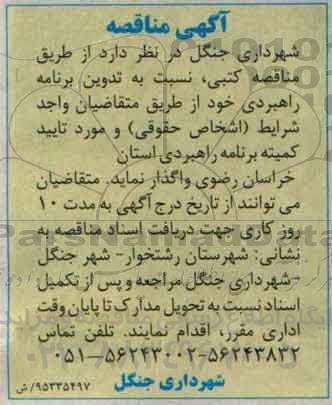 آگهی مناقصه
شهرداری جنگل در نظر دارد از طریق
مناقصه کتبی، نسبت به تدوین برنامه
راهبردی خود از طریق متقاضیان واجد
شرایط (اشخاص حقوقی) و مورد تایید
کمیته برنامه راهبردی استان
خراسان رضوی واگذار نماید. متقاضیان
می توانند از تاریخ درج آگهی به مدت ۱۰
روز کاری جهت دریافت اسناد مناقصه به
نشانی: شهرستان رشتخوار- شهر جنگل
-شهرداری جنگل مراجعه و پس از تکمیل
اسناد نسبت به تحویل مدارک تا پایان وقت
اداری مقرر، اقدام نمایند. تلفن تماس
۰۵۱-۵۶۲۴۳۰۰۲-۵۶۲۴۳۸۳۲
شهرداری جنگل
۹۵۳۳۵۴۹۷/ش